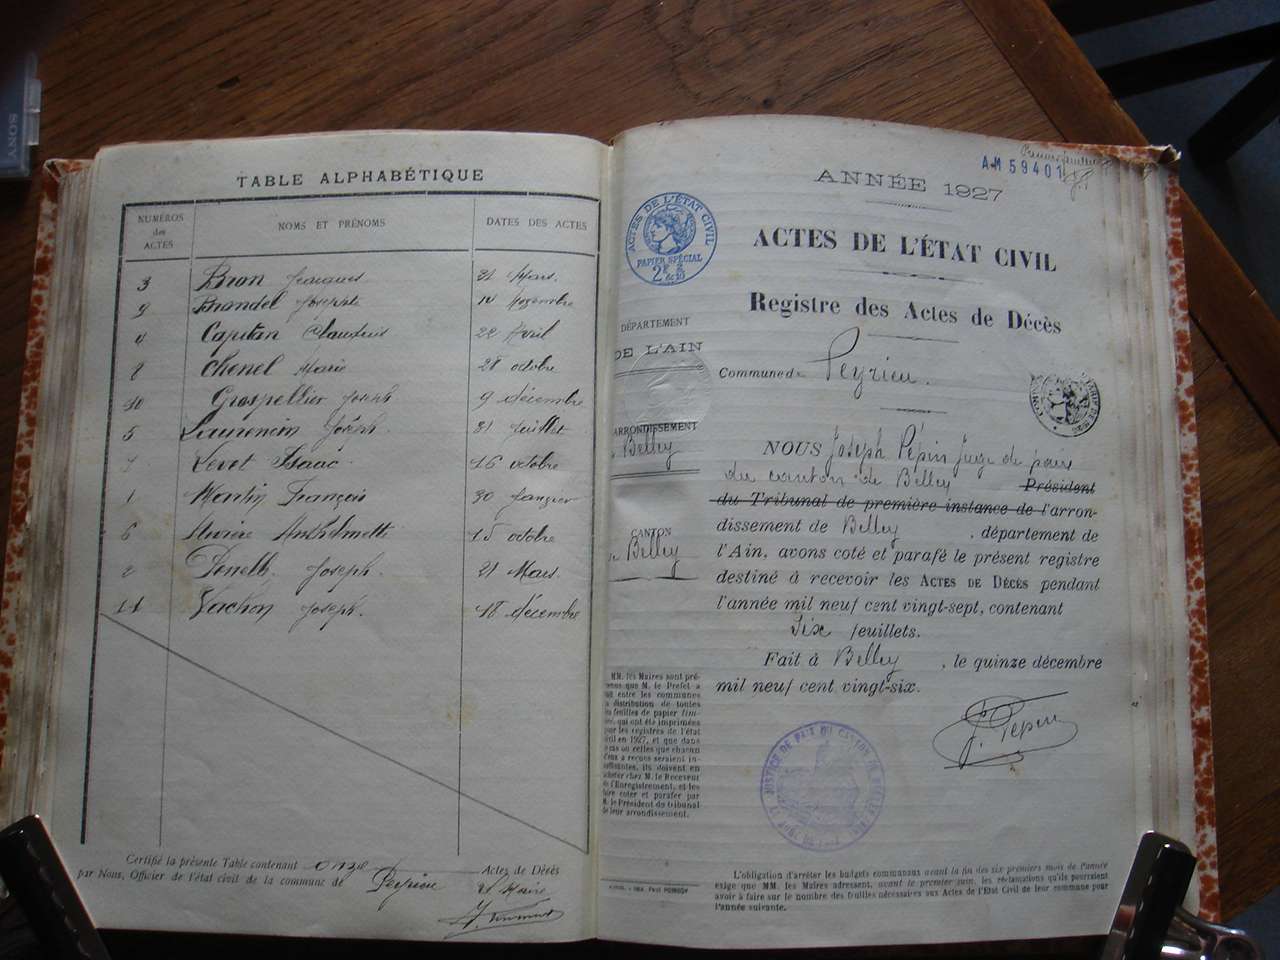 SONY
TABLE ALPHABÉTIQUE
NUMÉROS des ACTES NOMS ET PRÉNOMS DATES DES ACTES
3 Bron Jacques 31 Mars.
9 Brandel Joseph 12 Novembre
4 Capitan Claudius 22 Avril
8 Chenel Marie 28 octobre
10 Grospellier Joseph 9 décembre
5 Laurencin Joseph 31 Juillet
7 Levet Isaac 16 octobre
1 Martin François 30 Janvier
6 15 octobre
2 Joseph. 21 Mars.
11 Vachon Joseph. 18 décembre
Certifié la présente Table contenant onze Actes de Décès
par Nous, Officier de l'état civil de la commune de Peyrieu
Maire
AM 59401
ANNÉE 1927
ACTES DE L'ÉTAT CIVIL
PAPIER SPÉCIAL
ACTES DE L'ÉTAT CIVIL
Registre des Actes de Décès
DÉPARTEMENT
DE L'AIN
Commune de Peyrieu.
ARRONDISSEMENT
Belley
CANTON
Belley
NOUS Joseph Pépin Juge de paix
du canton de Belley Président
du Tribunal de première instance de l'arron-
dissement de Belley, département de
l'Ain, avons coté et parafé le présent registre
destiné à recevoir les ACTES DE DÉCÈS pendant
l'année mil neuf cent vingt-sept, contenant
Six feuillets.
Fait à Belley, le quinze décembre
mil neuf cent vingt-six.
J. Pépin
MM. les Maires sont pré-
venus que M. le Préfet a
fait entre les communes
la distribution de toutes
les feuilles de papier tim-
bré, qui ont été imprimées
pour les registres de l'état
civil en 1927, et que dans
le cas où celles que chacun
d'eux a reçues seraient in-
suffisantes, ils doivent en
acheter chez M. le Receveur
de l'Enregistrement, et les
faire coter et parafer par
M. le Président du tribunal
de leur arrondissement.
JUSTICE DE PAIX DU CANTON DE BELLEY
L'obligation d'arrêter les budgets communaux avant la fin des six premiers mois de l'année
exige que MM. les Maires adressent, avant le premier juin, les réclamations qu'ils pourraient
avoir à faire sur le nombre des feuilles nécessaires aux Actes de l'Etat Civil de leur commune pour
l'année suivante.